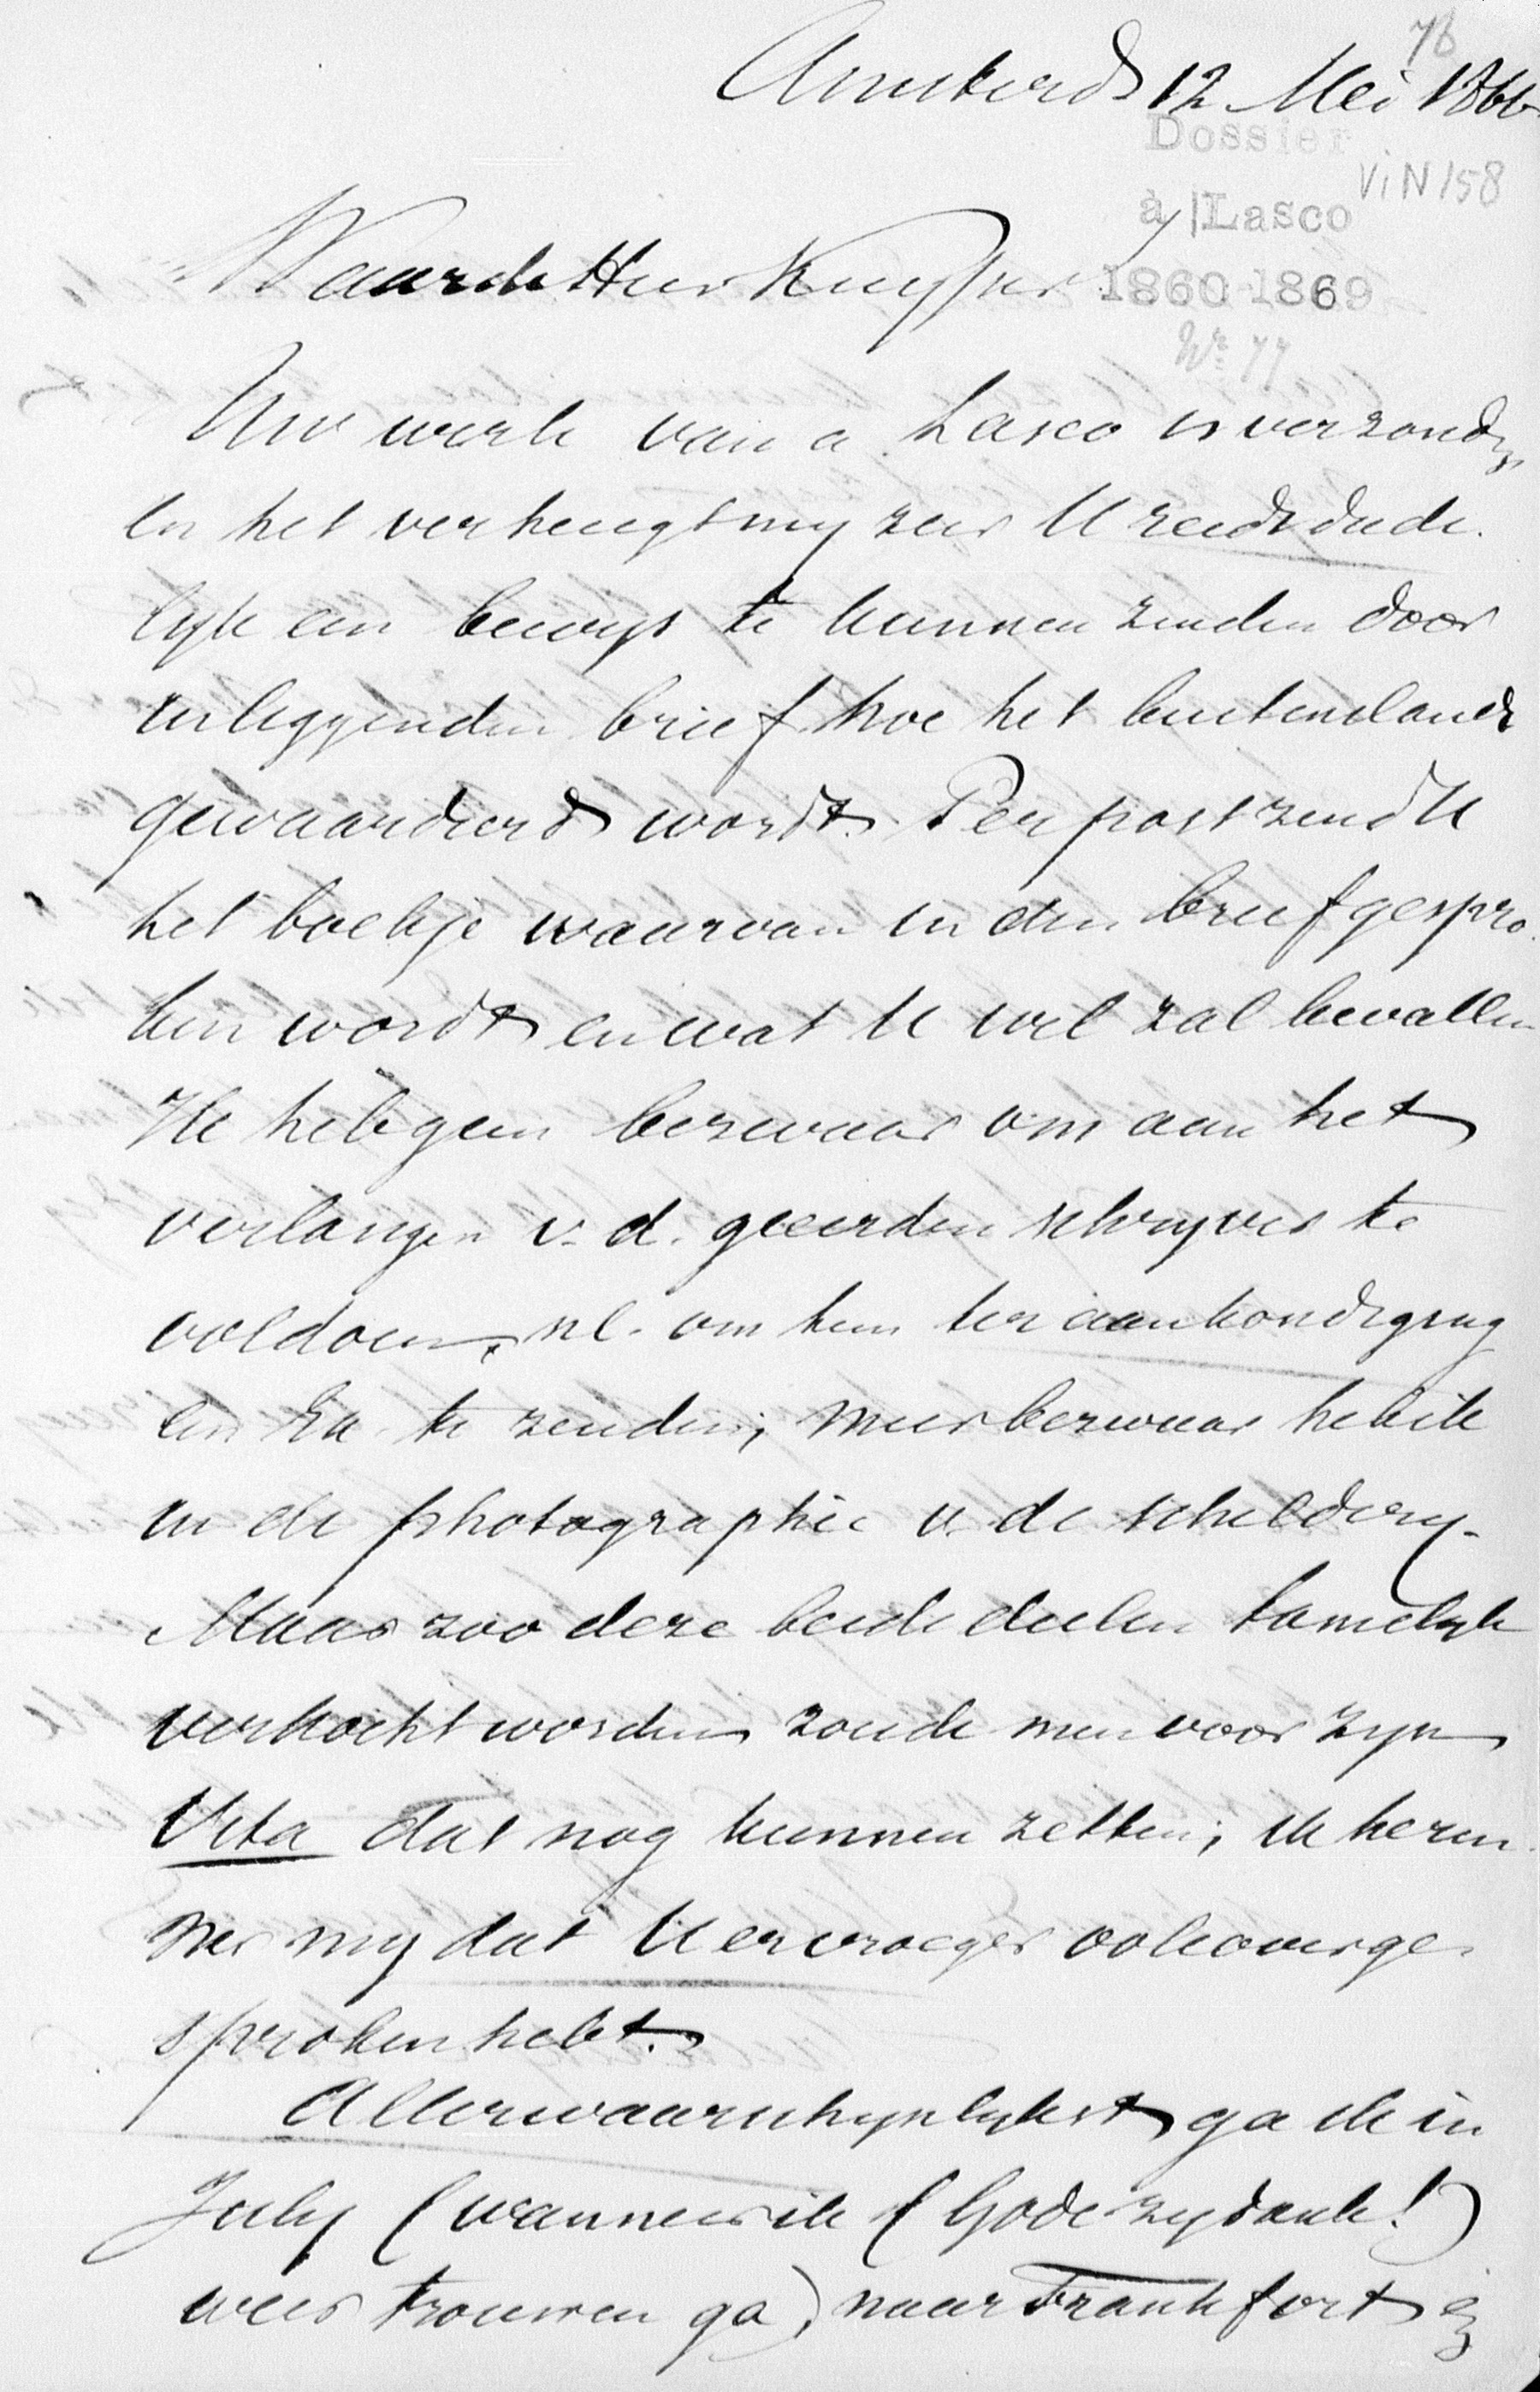 76
Amsterd 12 Mei 1866
Dossier
ViN 158
à Lasco
Waarde Heer Kuyper!
1860-1869
Nr 77
Uw werk van a Lasco is verzonden,
en het verheugt my zeer U reeds dade-
lyk een bewys te kunnen zenden door
inleggenden brief hoe het buitenslands
gewaardeerd wordt. Per post zend U
het boekje waarvan in den brief gespro-
ken wordt en wat U wel zal bevallen
Ik heb geen bezwaar om aan het
verlangen v. d. geeerden schryver te
voldoen, nl. om hem ter aankondiging
een Ex. te zenden; meer bezwaar heb ik
in de photographie v. de schildery.
Maar zoo deze beide deelen tamelyk
verkocht worden zoude men voor zyn
Vita dat nog kunnen zetten; ik herin-
ner my dat U er vroeger ook over ge-
sproken hebt.
Allerwaarschynlykst ga ik in
July (wanneer ik (Gode zy dank!)
weer trouwen ga), naar Frankfort en